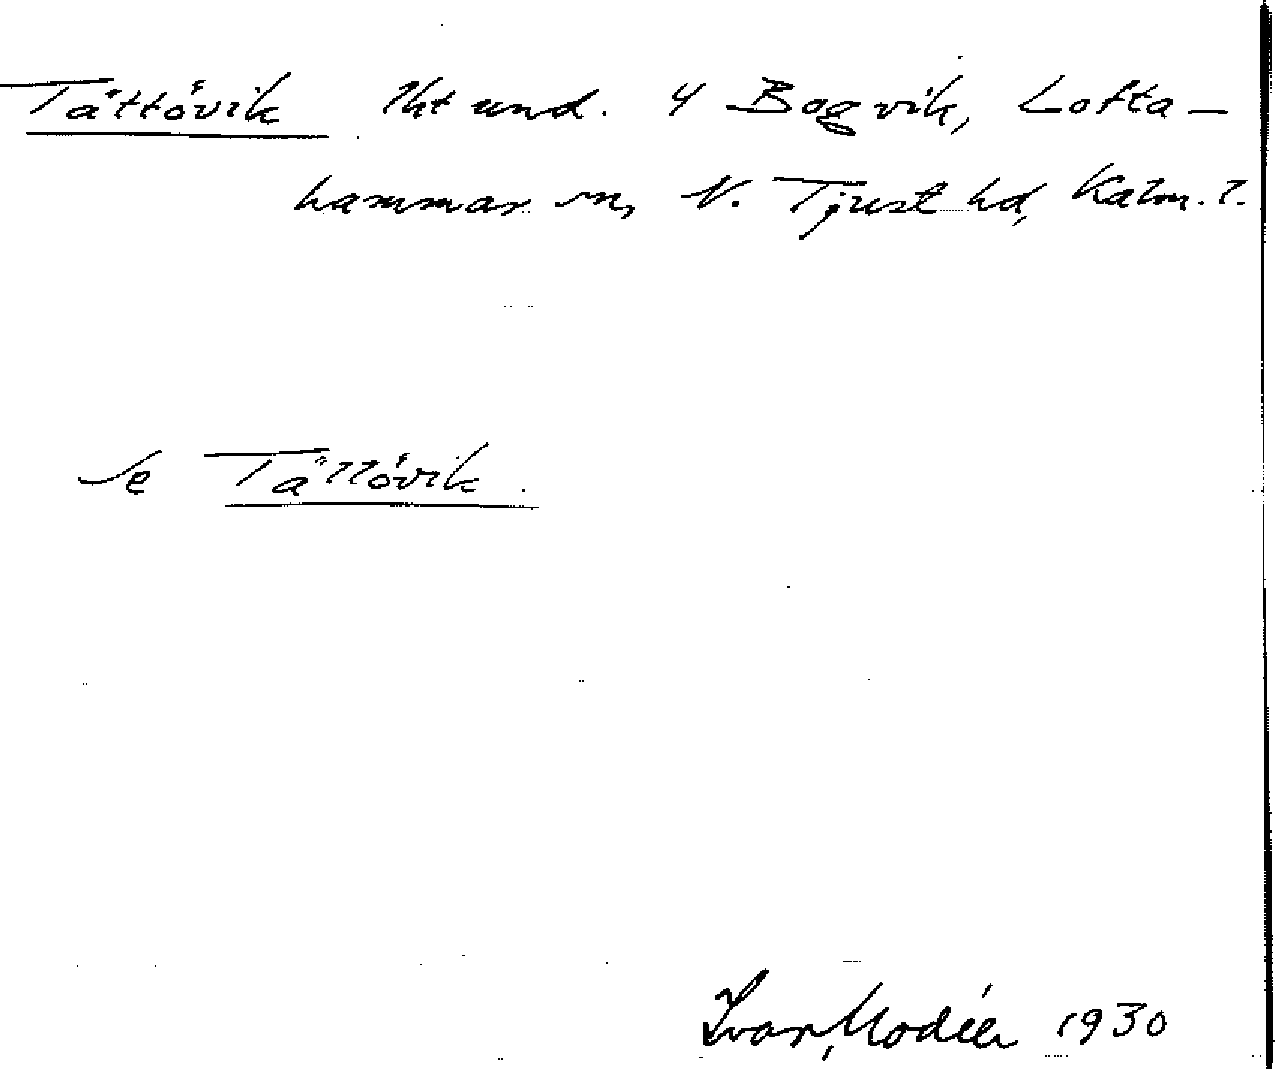 Tättövik lht und. 4 Bogvik, Lofta-
hammar sn, N. Tjust hd, Kalm. l.
Se Tällövik.
Ivar Modéer 1930